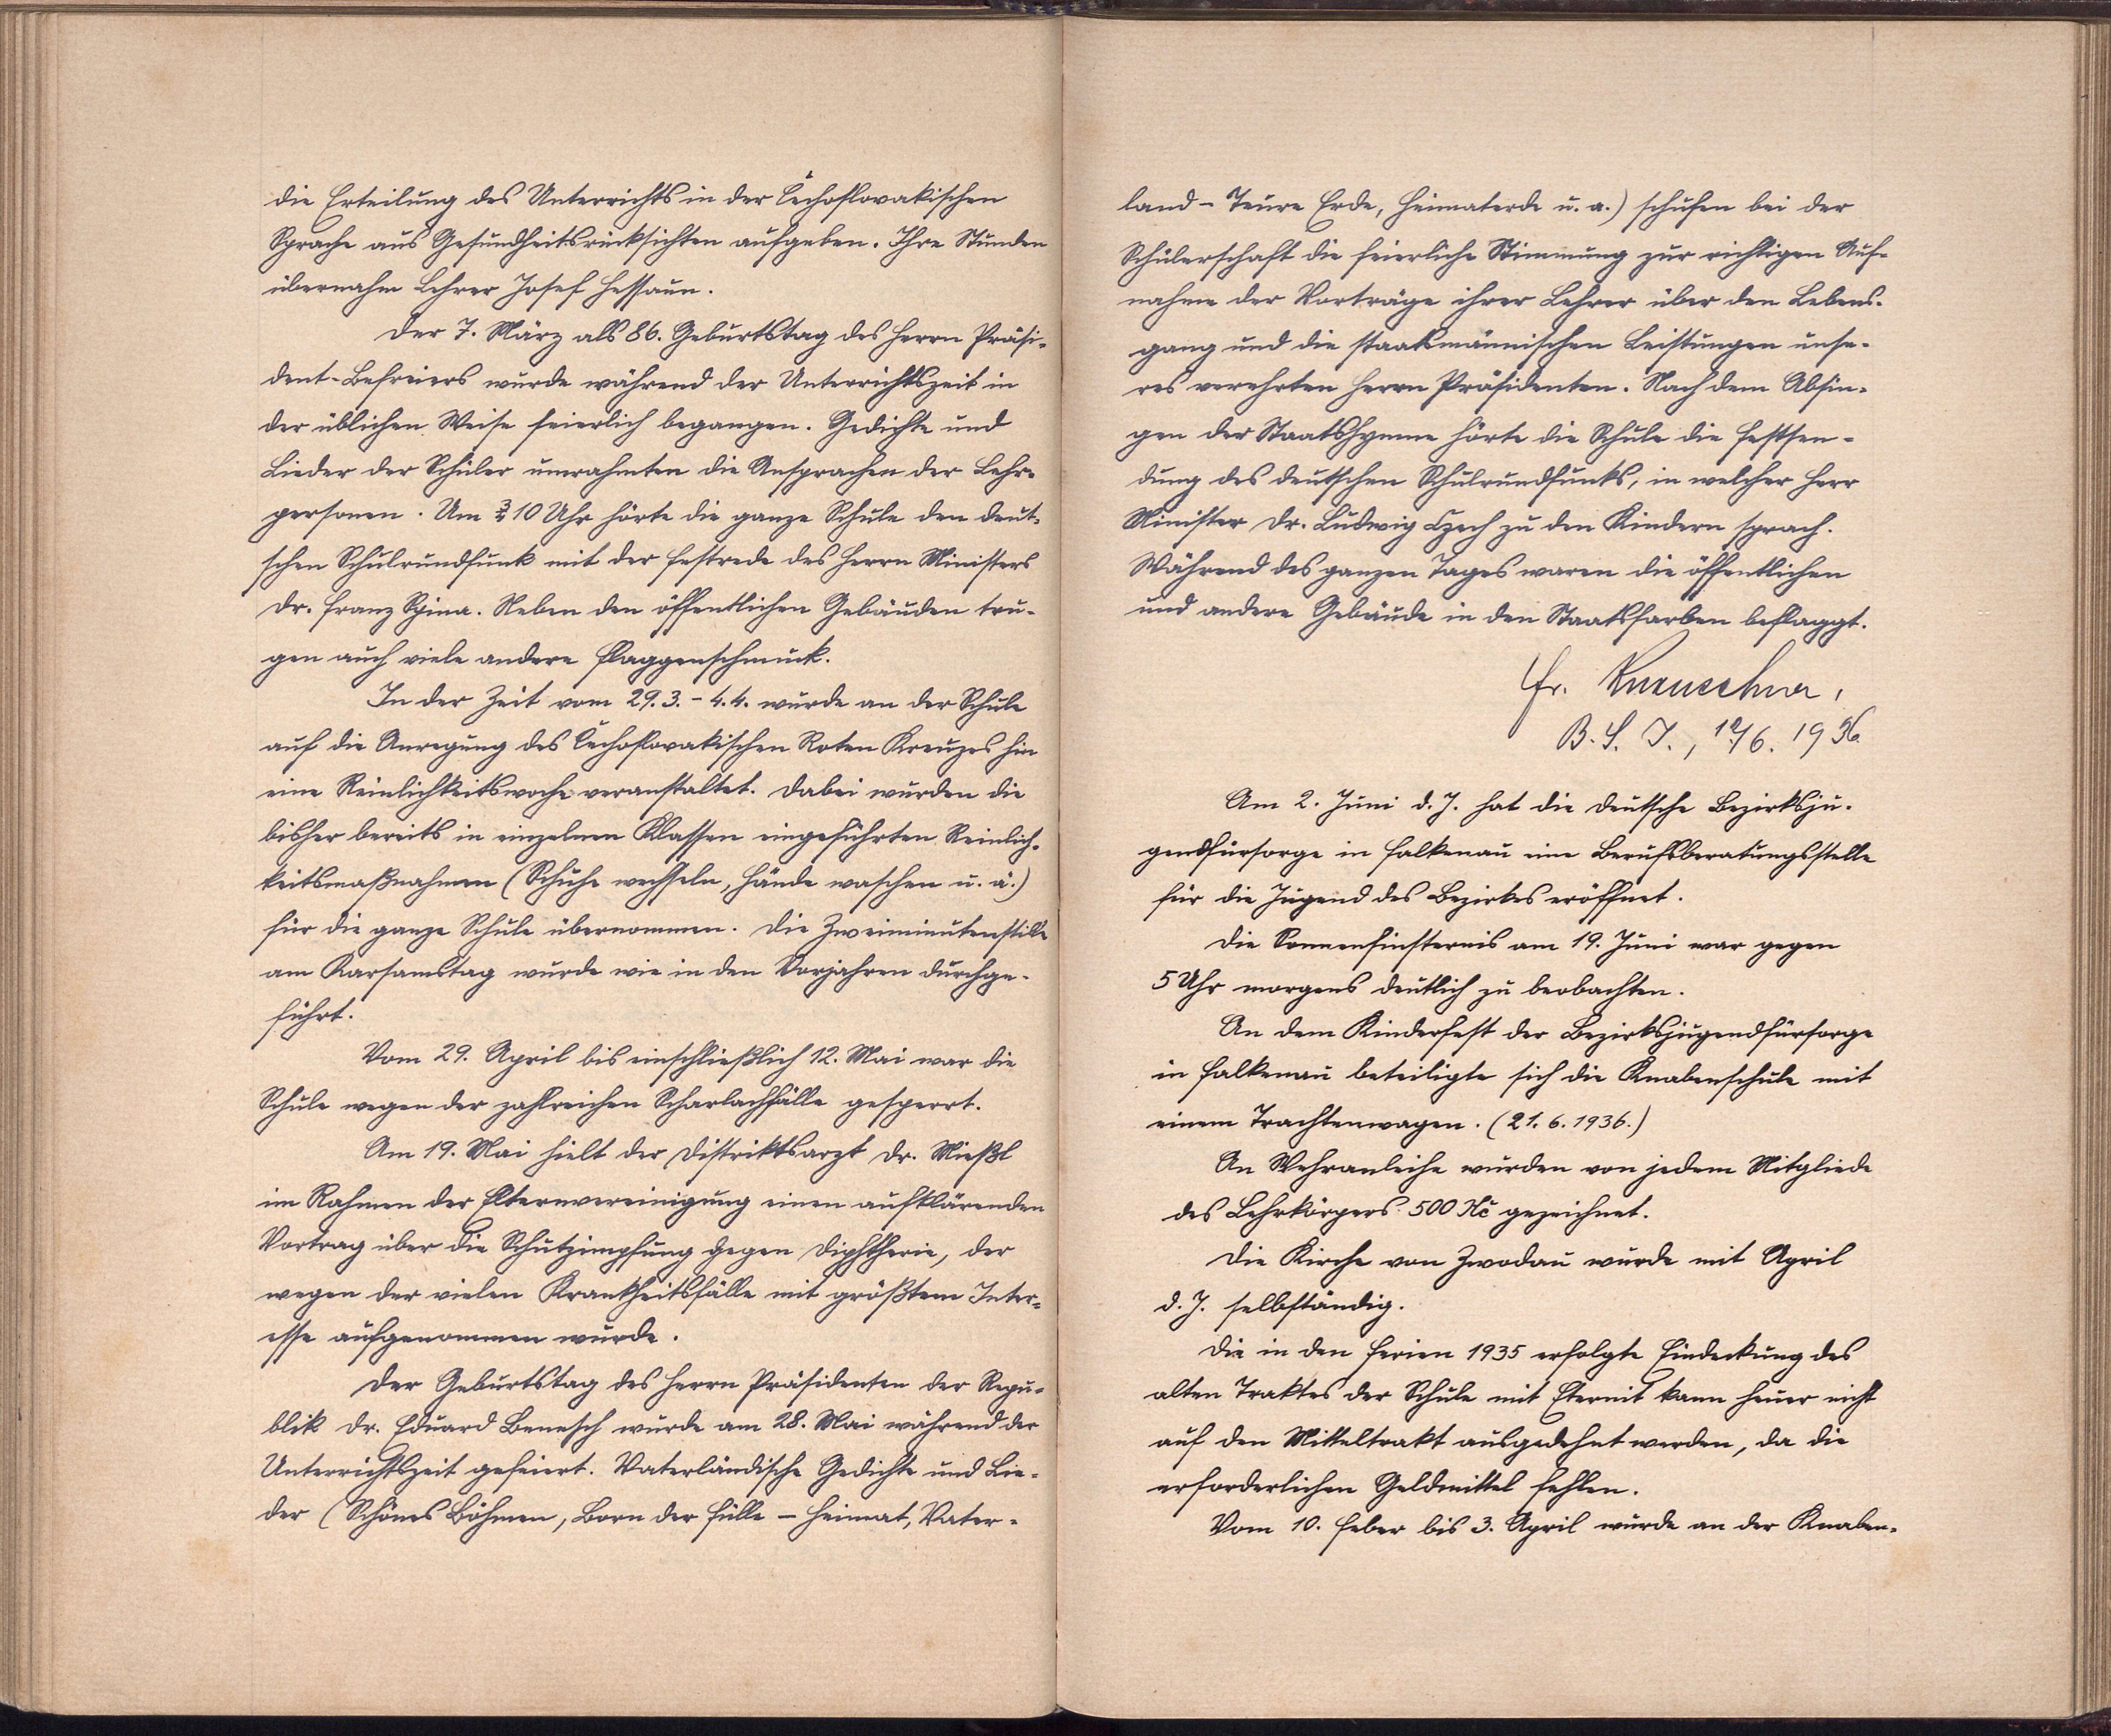 die Erteilung des Unterrichts in der čechoslovakischen
Sprache aus Gesundheitsrücksichten aufgeben. Ihre Stunden
übernahm Lehrer Josef Hessaun.
Der 7. März als 86. Geburtstag des Herrn Präsi-
dent-Befreiers wurde während der Unterrichtszeit in
der üblichen Weise feierlich begangen. Gedichte und
Lieder der Schüler umrahmten die Ansprachen der Lehr-
personen. Um ¾10 Uhr hörte die ganze Schule den deut-
schen Schulrundfunk mit der Festrede des Herrn Ministers
Dr. Franz Spina. Neben den öffentlichen Gebäuden tru-
gen auch viele andere Flaggenschmuck.
In der Zeit vom 29.3. - 4.4. wurde an der Schule
auf die Anregung des čechoslovakischen Roten Kreuzes hin
eine Reinlichkeitswoche veranstaltet. Dabei wurden die
bisher bereits in einzelnen Klassen eingeführten Reinlich-
keitsmaßnahmen (Schuhe wechseln, Hände waschen u. ä.)
für die ganze Schule übernommen. Die Zweiminutenstille
am Karsamstag wurde wie in den Vorjahren durchge-
führt.
Vom 29. April bis einschließlich 12. Mai war die
Schule wegen der zahlreichen Scharlachfälle gesperrt.
Am 19. Mai hielt der Distriktsarzt Dr. Mießl
im Rahmen der Elternvereinigung einen aufklärenden
Vortrag über die Schutzimpfung gegen Diphtherie, der
wegen der vielen Krankheitsfälle mit größtem Inter-
esse aufgenommen wurde.
Der Geburtstag des Herrn Präsidenten der Repu-
blik Dr. Eduard Benesch wurde am 28. Mai während der
Unterrichtszeit gefeiert. Vaterländische Gedichte und Lie-
der (Schönes Böhmen, Born der Fülle - Heimat, Vater-
land - Teure Erde, Heimaterde u. a.) schufen bei der
Schülerschaft die feierliche Stimmung zur richtigen Auf-
nahme der Vorträge ihrer Lehrer über den Lebens-
gang und die staatsmännischen Leistungen unse-
res verehrten Herrn Präsidenten. Nach dem Absin-
gen der Staatshymne hörte die Schule die Festsen-
dung des deutschen Schulrundfunks, in welcher Herr
Minister Dr. Ludwig Czech zu den Kindern sprach.
Während des ganzen Tages waren die öffentlichen
und andere Gebäude in den Staatsfarben beflaggt.
Fr.
B. S. I., 12/6. 1936
Am 2. Juni d. J. hat die deutsche Bezirksju-
gendfürsorge in Falkenau eine Berufsberatungsstelle
für die Jugend des Bezirkes eröffnet.
Die Sonnenfinsternis am 19. Juni war gegen
5 Uhr morgens deutlich zu beobachten.
An dem Kinderfest der Bezirksjugendfürsorge
in Falkenau beteiligte sich die Knabenschule mit
einem Trachtenwagen. (21. 6. 1936.)
An Wehranleihe wurden von jedem Mitgliede
des Lehrkörpers 500 Kč gezeichnet.
Die Kirche von Zwodau wurde mit April
d. J. selbständig.
Die in den Ferien 1935 erfolgte Eindeckung des
alten Traktes der Schule mit Eternit kann heuer nicht
auf den Mitteltrakt ausgedehnt werden, da die
erforderlichen Geldmittel fehlen.
Vom 10. Feber bis 3. April wurde an der Knaben-